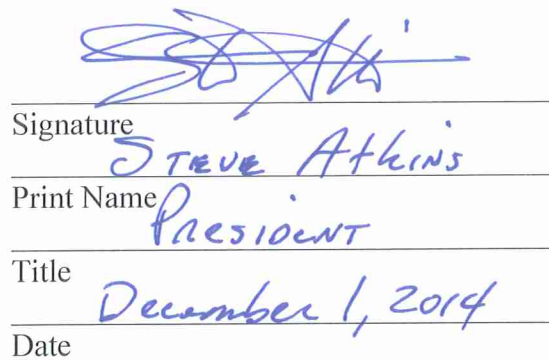 Signature
Steve Atkins
Print Name
President
Title
December 1, 2014
Date